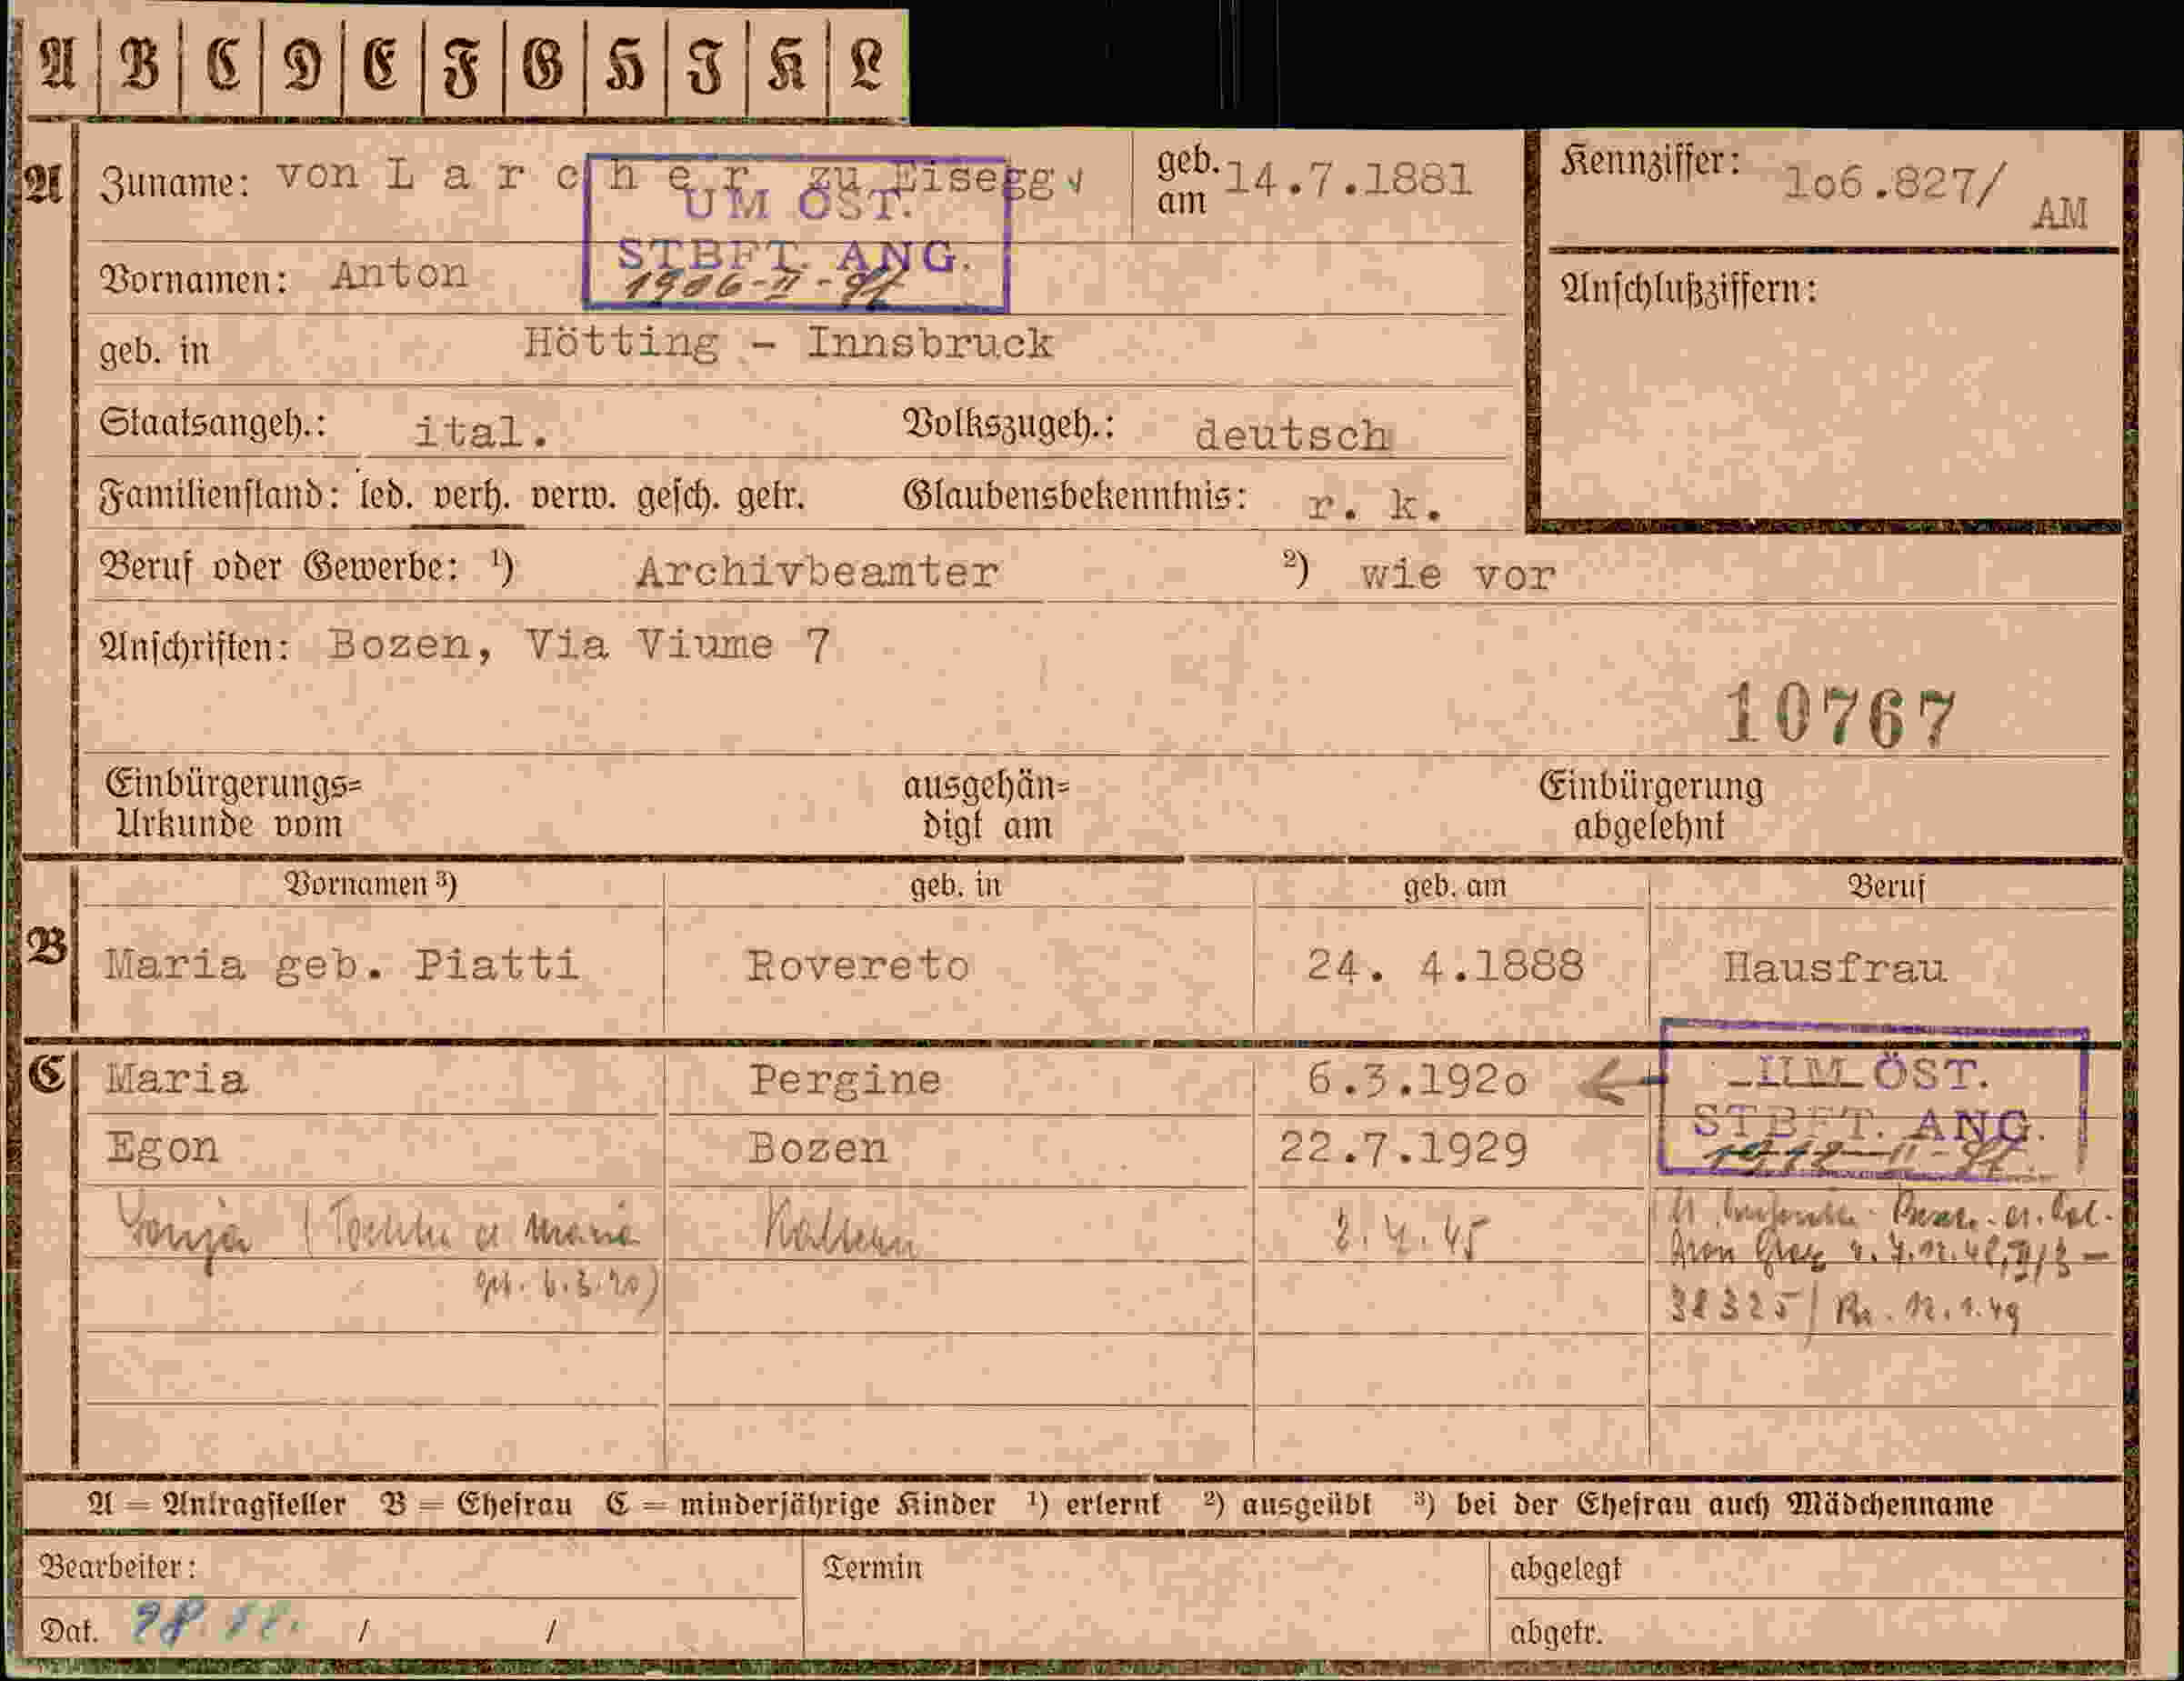 A B C D E F G H I K L
A Zuname: von L a r c h e r zu Eisegg geb. am 14.7.1881 Kennziffer: 1o6.827/ AM
UM ÖST.
STBFT. ANG.
Vornamen: Anton Anschlußziffern:
geb. in Hötting - Innsbruck
Staatsangeh.: ital. Volkszugeh.: deutsch
Familienstand: led. verh. verw. gesch. getr. Glaubensbekenntnis: r. k.
Beruf oder Gewerbe: ¹) Archivbeamter ²) wie vor
Anschriften: Bozen, Via Viume 7
10767
Einbürgerungs= ausgehän= Einbürgerung
Urkunde vom digt am abgelehnt
Vornamen ³) geb. in geb. am Beruf
B Maria geb. Piatti Rovereto 24. 4.1888 Hausfrau
C Maria Pergine 6.3.192o
UM ÖST.
STBFT. ANG.
Egon Bozen 22.7.1929
Sonja (Tochter d Maria Kaltern 2.4.45
geb. 6.3.20)
38325/ 12.1.49
A = Antragsteller B = Ehefrau C = minderjährige Kinder ¹) erlernt ²) ausgeübt ³) bei der Ehefrau auch Mädchenname
Bearbeiter: Termin abgelegt
Dat. / / abgetr.